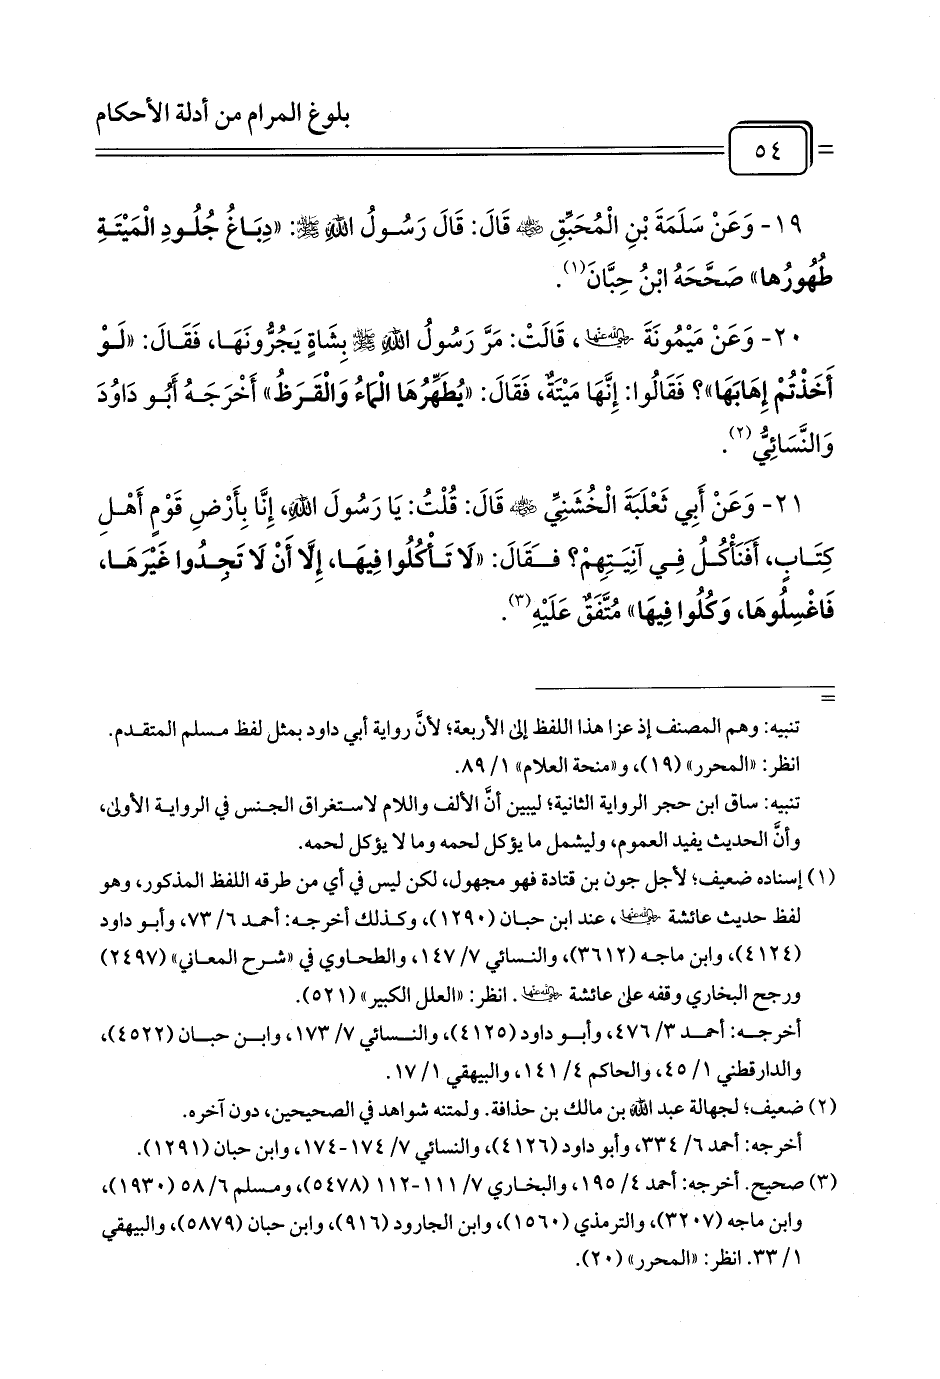 بلوغ المرام من أدلة الأحكام
٥٤
١٩- وَعَنْ سَلَمَةَ بْنِ الْمُحَبِّقِ رضي الله عنه قَالَ: قَالَ رَسُولُ اللهِ ﷺ: «دِبَاغُ جُلُودِ الْمَيْتَةِ
طُهُورُها» صَحَّحَهُ ابْنُ حِبَّانَ(١).
٢٠- وَعَنْ مَيْمُونَةَ رضي الله عنها، قَالَتْ: مَرَّ رَسُولُ اللهِ ﷺ بِشَاةٍ يَجُرُّونَهَا، فَقَالَ: «لَوْ
أَخَذْتُمْ إِهَابَهَا»؟ فَقَالُوا: إِنَّهَا مَيْتَةٌ، فَقَالَ: «يُطَهِّرُهَا الْمَاءُ وَالْقَرَظُ» أَخْرَجَهُ أَبُو دَاوُدَ
وَالنَّسَائِيُّ(٢).
٢١- وَعَنْ أَبِي ثَعْلَبَةَ الْخُشَنِيِّ رضي الله عنه قَالَ: قُلْتُ: يَا رَسُولَ اللهِ، إِنَّا بِأَرْضِ قَوْمٍ أَهْلِ
كِتَابٍ، أَفَنَأْكُلُ فِي آنِيَتِهِمْ؟ فَقَالَ: «لَا تَأْكُلُوا فِيهَا، إِلَّا أَنْ لَا تَجِدُوا غَيْرَهَا،
فَاغْسِلُوهَا، وَكُلُوا فِيهَا» مُتَّفَقٌ عَلَيْهِ(٣).
=
تنبيه: وهم المصنف إذ عزا هذا اللفظ إلى الأربعة؛ لأنَّ رواية أبي داود بمثل لفظ مسلم المتقدم.
انظر: «المحرر» (١٩)، و«منحة العلام» ١/ ٨٩.
تنبيه: ساق ابن حجر الرواية الثانية؛ ليبين أنَّ الألف واللام لاستغراق الجنس في الرواية الأولى،
وأنَّ الحديث يفيد العموم، وليشمل ما يؤكل لحمه وما لا يؤكل لحمه.
(١) إسناده ضعيف؛ لأجل جون بن قتادة فهو مجهول، لكن ليس في أي من طرقه اللفظ المذكور، وهو
لفظ حديث عائشة رضي الله عنها، عند ابن حبان (١٢٩٠)، وكذلك أخرجه: أحمد ٦/ ٧٣، وأبو داود
(٤١٢٤)، وابن ماجه (٣٦١٢)، والنسائي ٧/ ١٤٧، والطحاوي في «شرح المعاني» (٢٤٩٧)
ورجح البخاري وقفه على عائشة رضي الله عنها. انظر: «العلل الكبير» (٥٢١).
أخرجه: أحمد ٣/ ٤٧٦، وأبو داود (٤١٢٥)، والنسائي ٧/ ١٧٣، وابن حبان (٤٥٢٢)،
والدارقطني ١/ ٤٥، والحاكم ٤/ ١٤١، والبيهقي ١/ ١٧.
(٢) ضعيف؛ لجهالة عبد الله بن مالك بن حذافة. ولمتنه شواهد في الصحيحين، دون آخره.
أخرجه: أحمد ٦/ ٣٣٤، وأبو داود (٤١٢٦)، والنسائي ٧/ ١٧٤-١٧٤، وابن حبان (١٢٩١).
(٣) صحيح. أخرجه: أحمد ٤/ ١٩٥، والبخاري ٧/ ١١١-١١٢ (٥٤٧٨)، ومسلم ٦/ ٥٨ (١٩٣٠)،
وابن ماجه (٣٢٠٧)، والترمذي (١٥٦٠)، وابن الجارود (٩١٦)، وابن حبان (٥٨٧٩)، والبيهقي
١/ ٣٣. انظر: «المحرر» (٢٠).